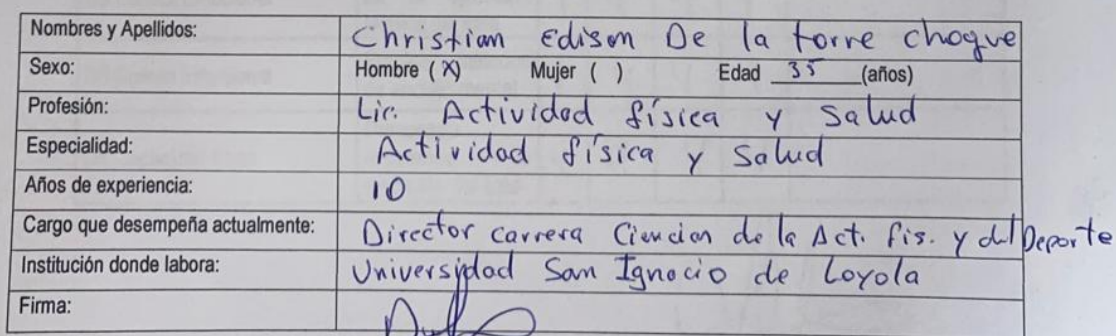 Nombres y Apellidos: Christian Edison De la torre choque
Sexo: Hombre (X) Mujer ( ) Edad 35 (años)
Profesión: Lic. Actividad física y Salud
Especialidad: Actividad física y Salud
Años de experiencia: 10
Cargo que desempeña actualmente: Director carrera Ciencian de la Act. fis. y del Deporte
Institución donde labora: Universidad San Ignacio de Loyola
Firma: